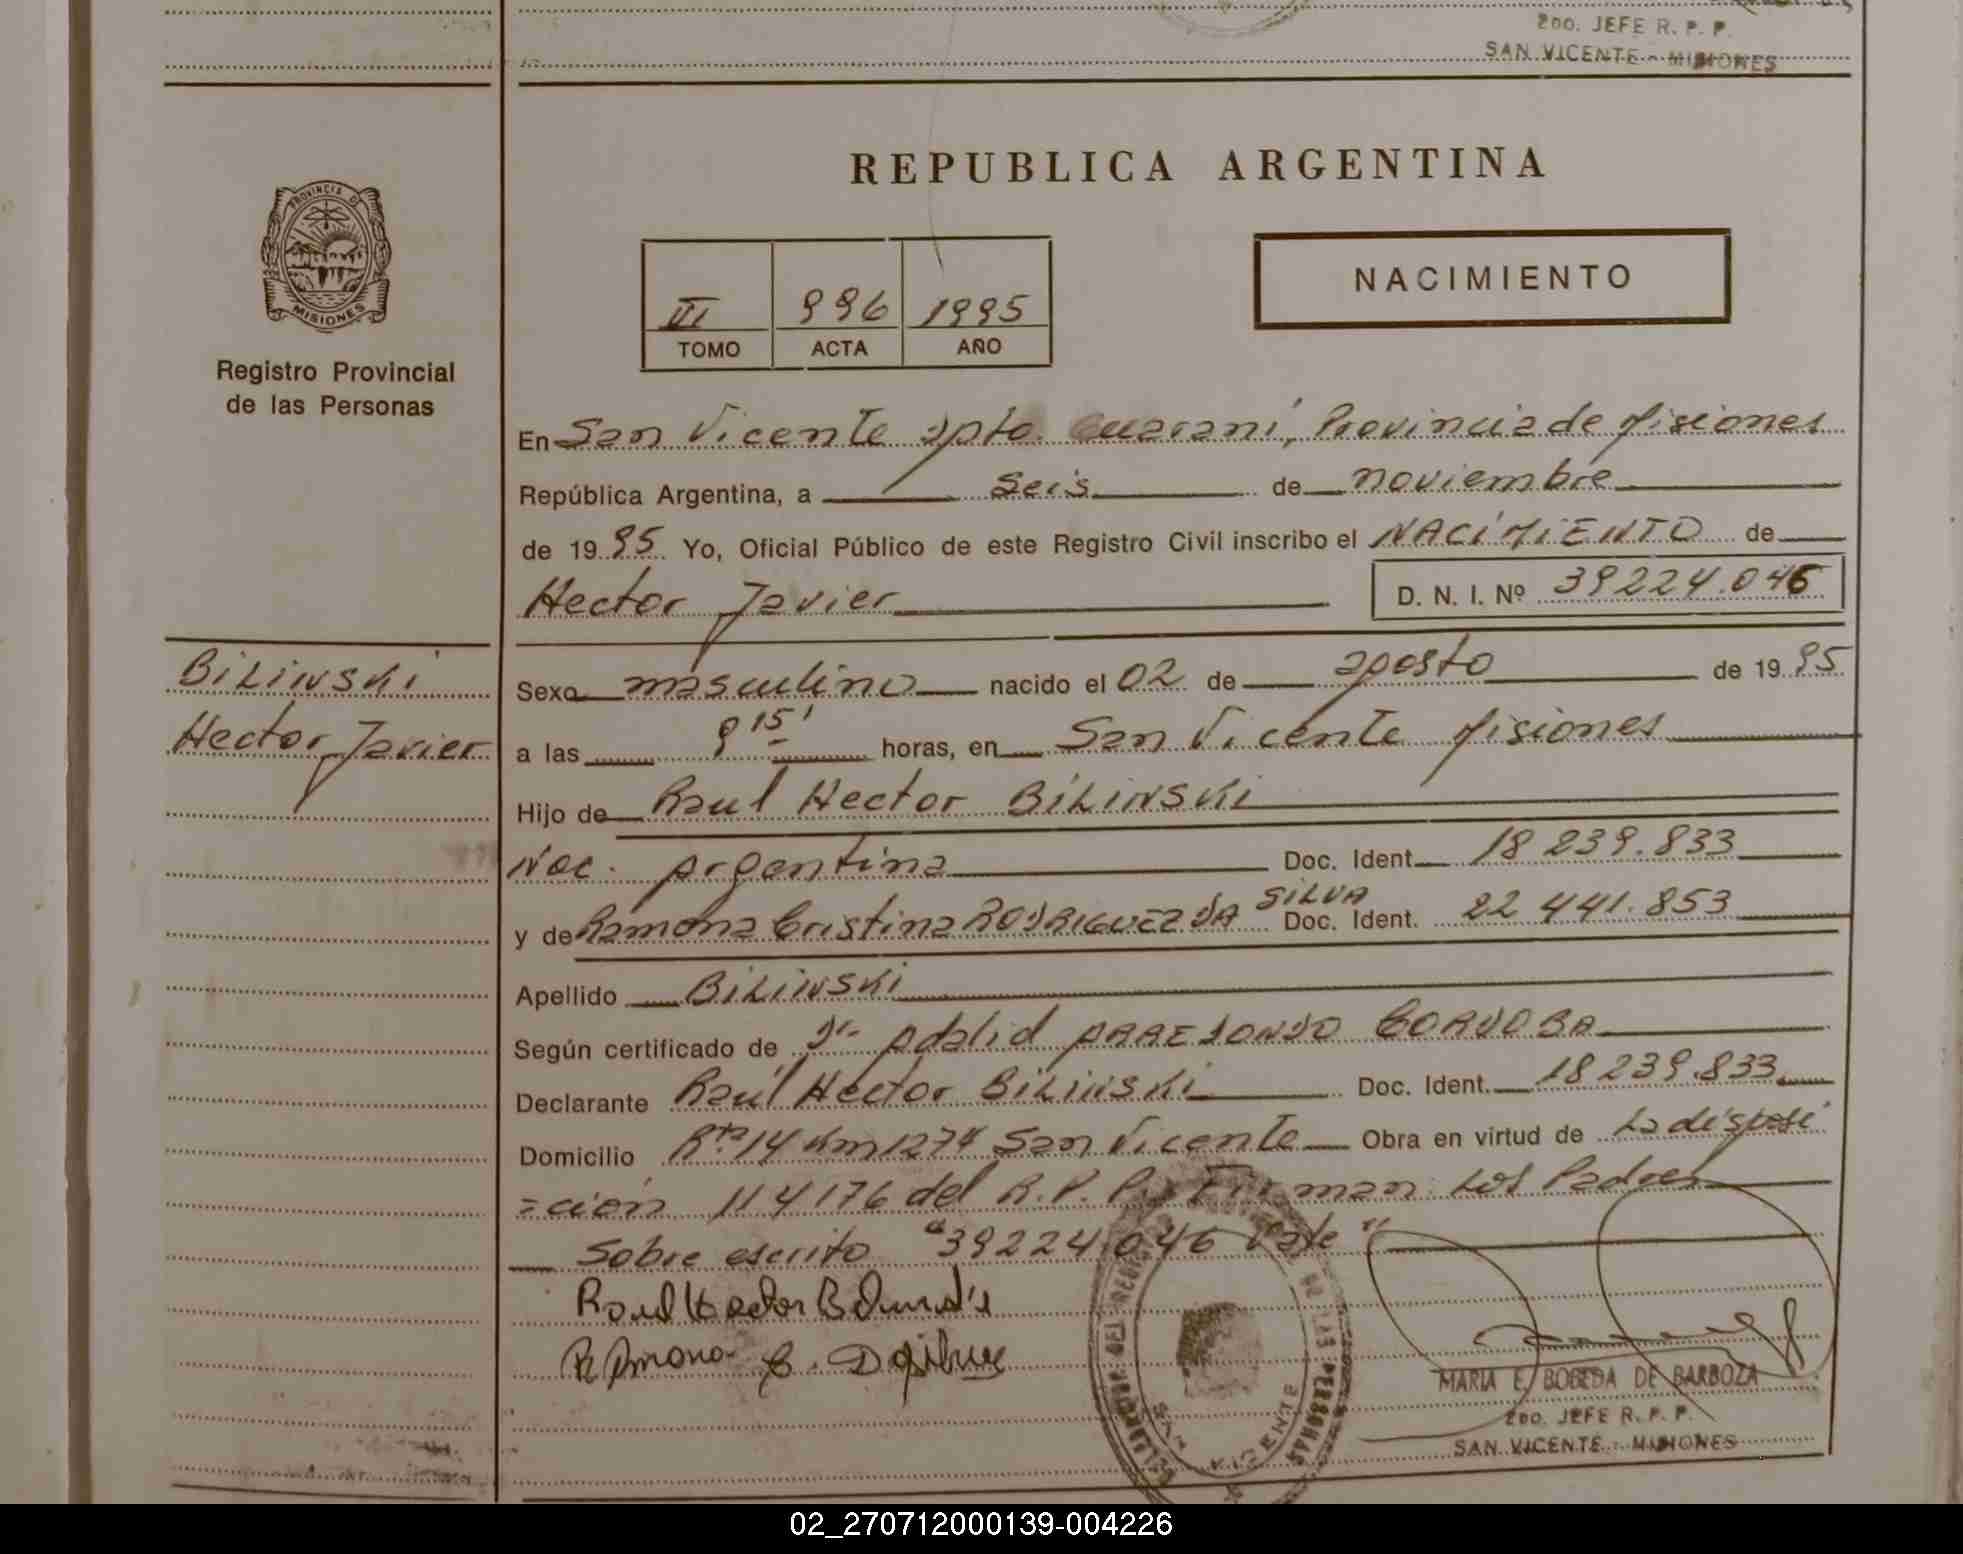 2do. JEFE R. P. P.
SAN VICENTE - MISIONES
PROVINCIA DE
MISIONES
Registro Provincial
de las Personas
REPUBLICA ARGENTINA
NACIMIENTO
996 1995
TOMO ACTA AÑO
En San Vicente Dpto. Guaraní, Provincia de Misiones
República Argentina, a Seis de noviembre
de 1995 Yo, Oficial Público de este Registro Civil inscribo el NACIMIENTO de
Hector Javier D. N. I. Nº 39224.046
Bilinski
Hector Javier
Sexo masculino nacido el 02 de agosto de 1995
a las 9 15' horas, en San Vicente Misiones
Hijo de Raul Hector Bilinski
Nac. Argentina Doc. Ident. 18 239.833
y de Ramona Cristina RODRIGUEZ DA SILVA Doc. Ident. 22 441.853
Apellido Bilinski
Según certificado de Dr. Adalid ARREDONDO CORDOBA
Declarante Raúl Hector Bilinski Doc. Ident. 18 239.833
Domicilio Rta 14 Km 1274 San Vicente Obra en virtud de La disposi
=ción 114176 del R.P.P. Firman: Los Padres
Sobre escrito "39224.046 Vale"
Raul Hector Bilinski
Ramona C. D
SAN VICENTE
MARIA E. BOBEDA DE BARBOZA
2do. JEFE R. P. P.
SAN VICENTE - MISIONES
02_270712000139-004226